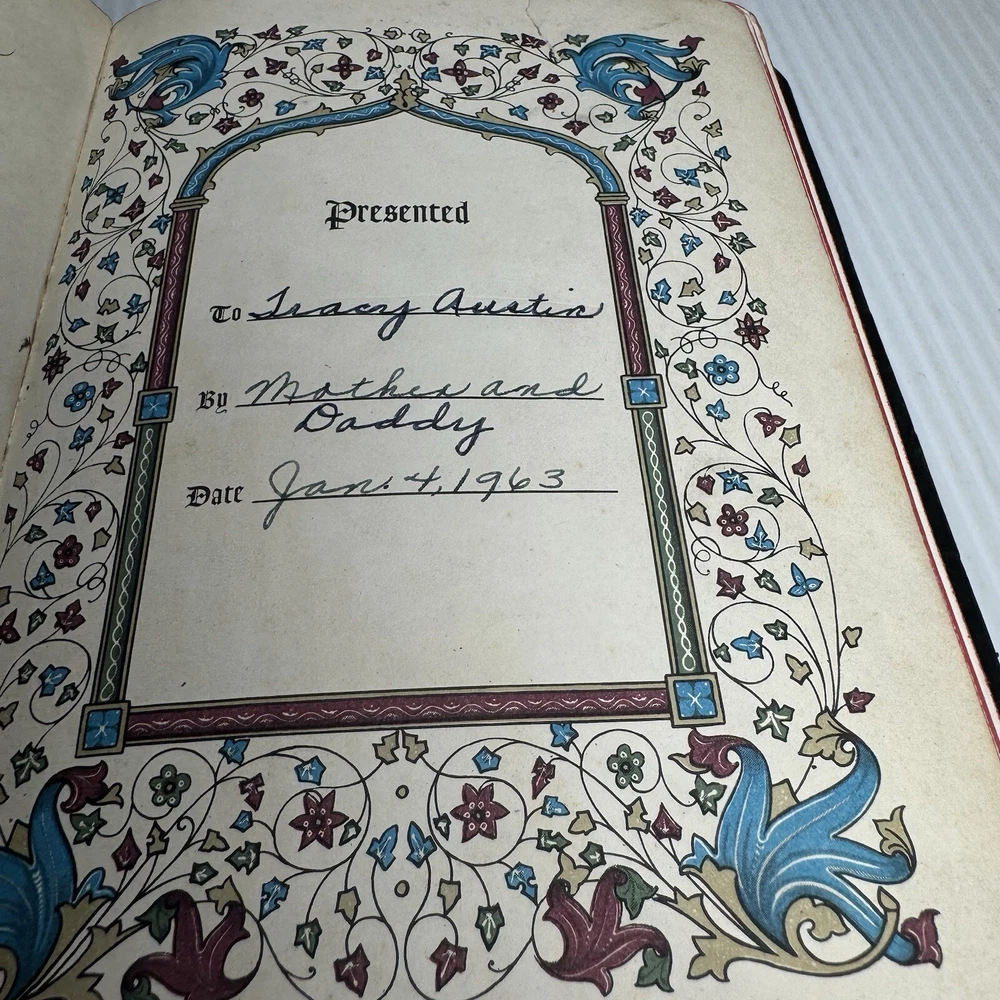 Presented
To Tracy Austin
By Mother and
Daddy
Date Jan. 4, 1963